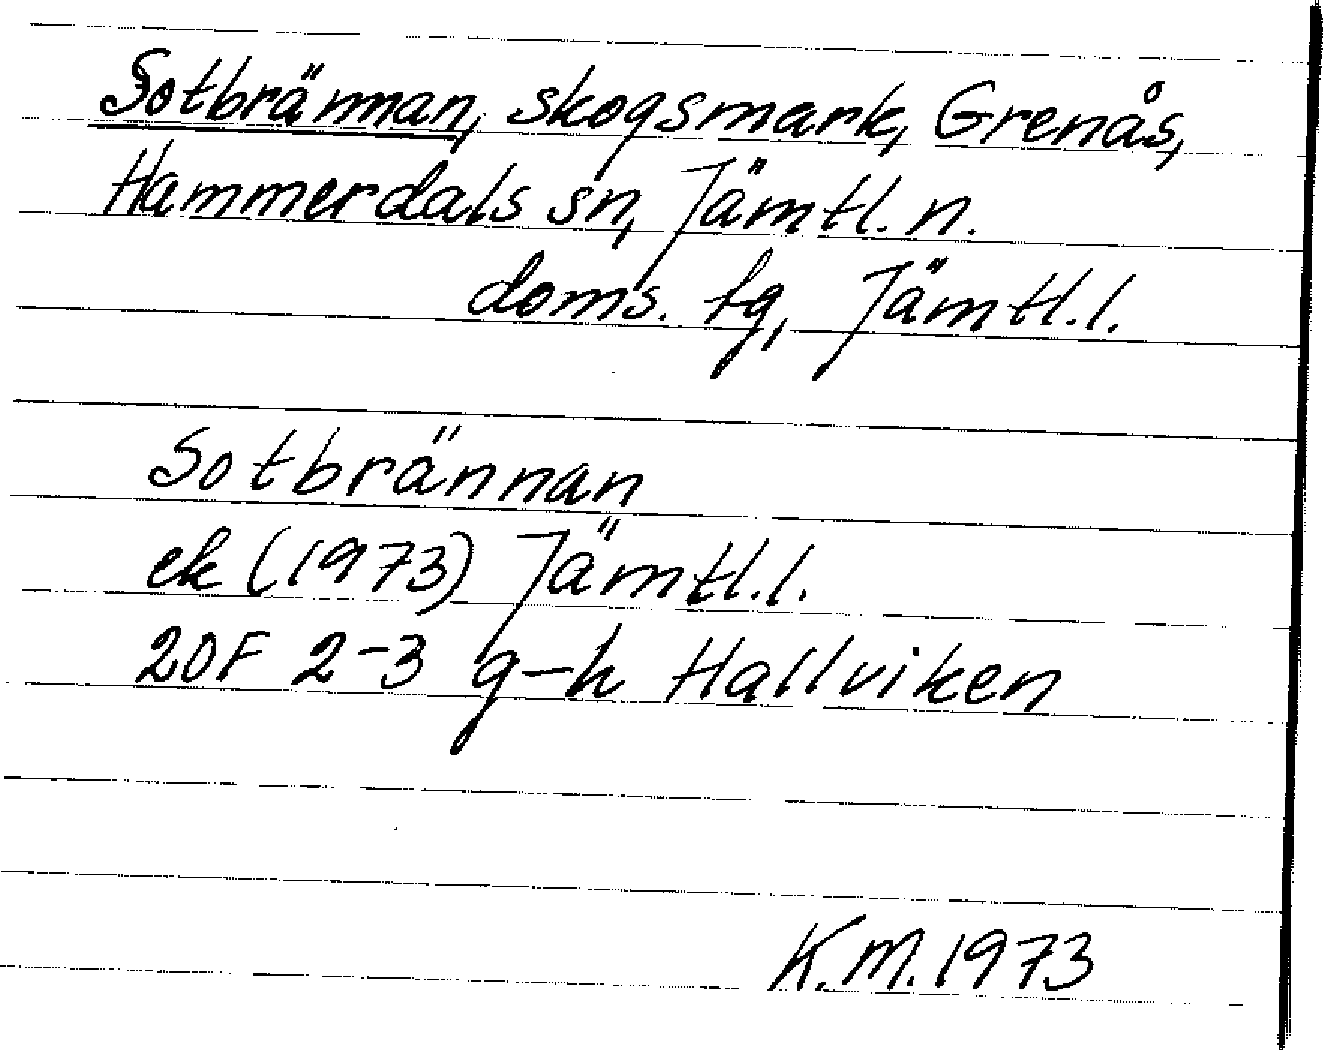 Sotbrännan, skogsmark, Grenås,
Hammerdals sn, Jämtl. n.
doms. tg, Jämtl.l.
Sotbrännan
ek (1973) Jämtl.l.
20F 2-3 g-h Hallviken
K.M. 1973